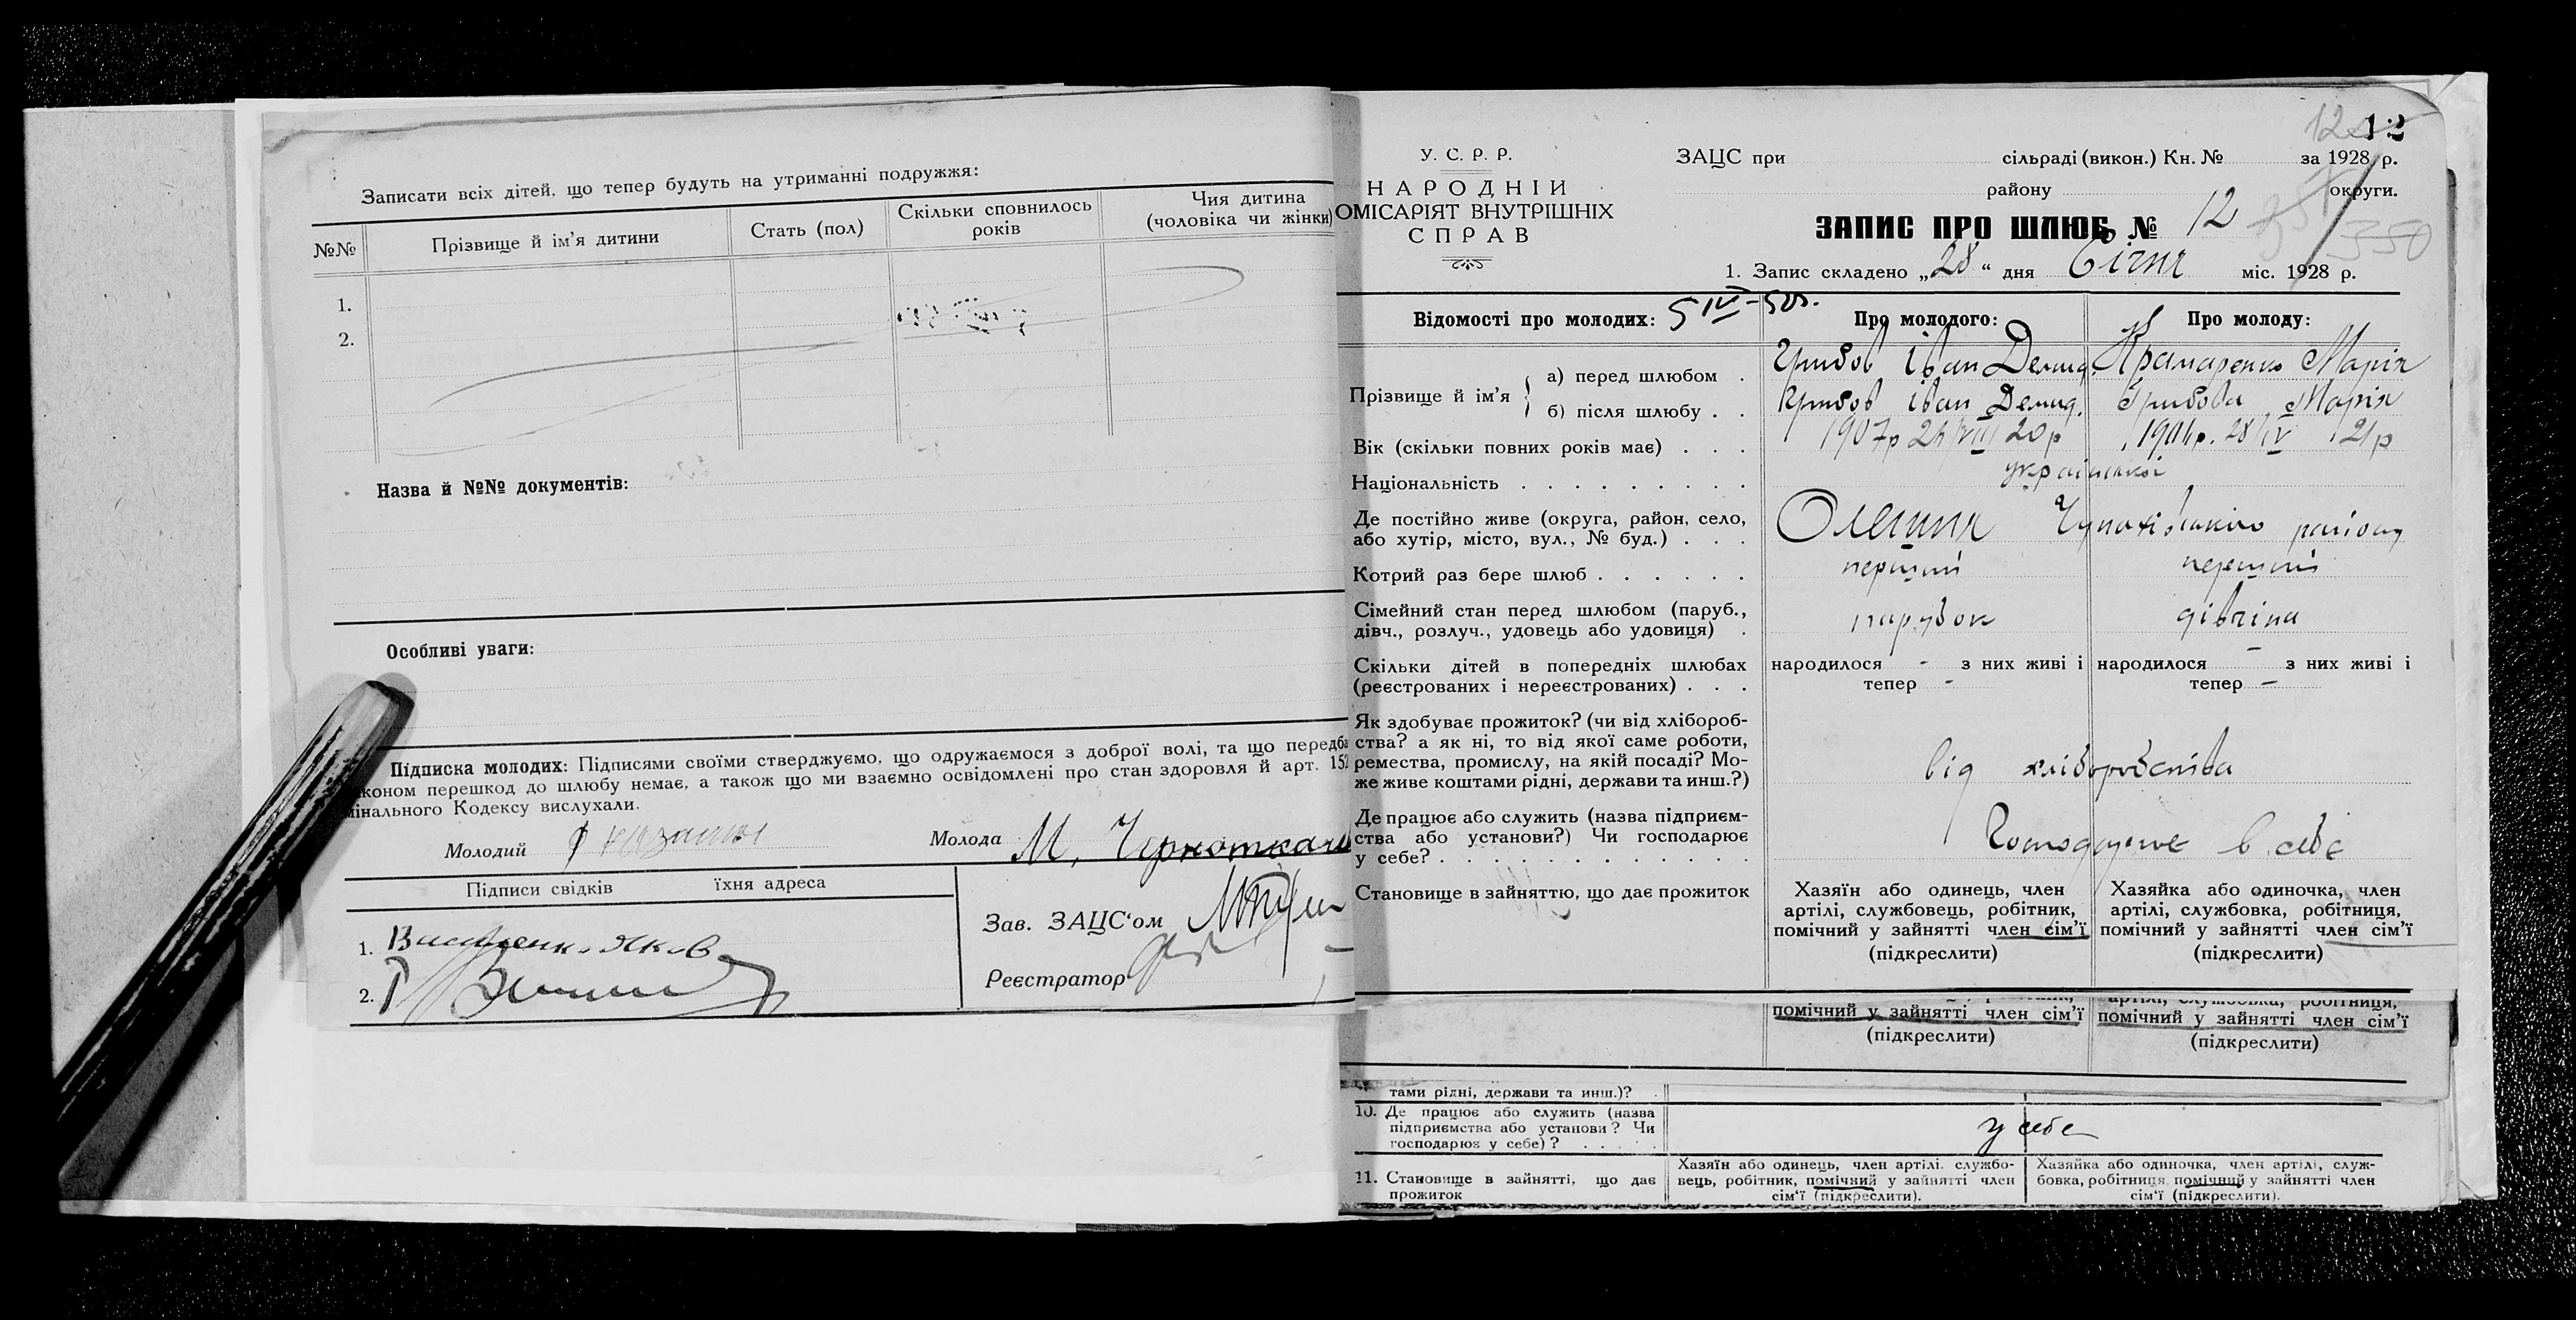 Записати всіх дітей, що тепер будуть на утриманні подружжя:
№№ Прізвище й ім'я дитини Стать (пол) Скільки сповнилось років Чия дитина (чоловіка чи жінки)
1.
2.
Назва й №№ документів:
Особливі уваги:
Підписка молодих: Підписями своїми стверджуємо, що одружаємося з доброї волі, та що передба
коном перешкод до шлюбу немає, а також що ми взаємно освідомлені про стан здоровля й арт. 152
мінального Кодексу вислухали.
Молодий Молода М. Черноткач
Підписи свідків їхня адреса
1. Яков
2.
Зав. ЗАЦС'ом
Реєстратор
12 12
У. С. Р. Р.
НАРОДНІЙ
ОМІСАРІЯТ ВНУТРІШНІХ
СПРАВ
ЗАЦС при сільраді (викон.) Кн. № за 1928 р.
району округи.
350
ЗАПИС ПРО ШЛЮБ № 12
1. Запис складено „28“ дня Січня міс. 1928 р.
5 IV-50г.
Відомості про молодих: Про молодого: Про молоду:
Прізвище й ім'я
а) перед шлюбом . Грибов Іван Демид. Крамаренко Марія
б) після шлюбу . . Грибов Іван Демид. Грибова Марія
Вік (скільки повних років має) . . . 1907р VIII 20р 28/IV 21р
Національність . . . . . . . . . української
Де постійно живе (округа, район, село,
або хутір, місто, вул., № буд.) . . . Олешня Чупахівського району
Котрий раз бере шлюб . . . . . . перший перший
Сімейний стан перед шлюбом (паруб.,
дівч., розлуч., удовець або удовиця) . парубок дівчина
Скільки дітей в попередніх шлюбах
(реєстрованих і нереєстрованих) . . .
народилося - з них живі і
тепер -
народилося - з них живі і
тепер -
Як здобуває прожиток? (чи від хлібороб-
ства? а як ні, то від якої саме роботи,
ремества, промислу, на якій посаді? Мо-
же живе коштами рідні, держави та инш.?)
від хліборобства
Де працює або служить (назва підприєм-
ства або установи?) Чи господарює
у себе? . . . . . . . . . . . . .
Господарює в себе
Становище в зайняттю, що дає прожиток
Хазяїн або одинець, член
артілі, службовець, робітник,
помічний у зайнятті член сім'ї
(підкреслити)
Хазяйка або одиночка, член
артілі, службовка, робітниця,
помічний у зайнятті член сім'ї
(підкреслити)
помічний у зайнятті член сім'ї
(підкреслити)
артілі, службовка, робітниця,
помічний у зайнятті член сім'ї
(підкреслити)
тами рідні, держави та инш.)?
10. Де працює або служить (назва
підприємства або установи? Чи
господарює у себе)? . . . . .
у себе
11. Становище в зайнятті, що дає
прожиток
Хазяїн або одинець, член артілі, службо-
вець, робітник, помічний у зайнятті член
сім'ї (підкреслити).
Хазяйка або одиночка, член артілі, служ-
бовка, робітниця, помічний у зайнятті член
сім'ї (підкреслити).